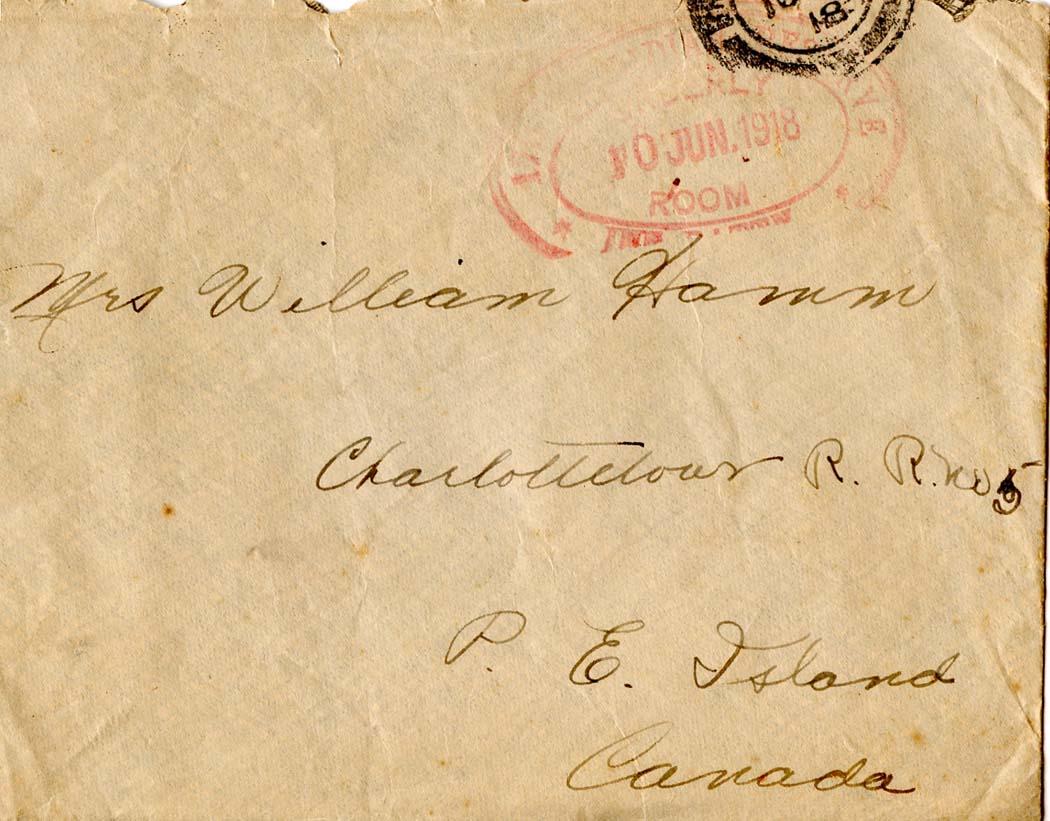 18
10 JUN. 1918
ROOM
Mrs William Hamm
Charlottetown R. R. No 5
P. E. Island
Canada